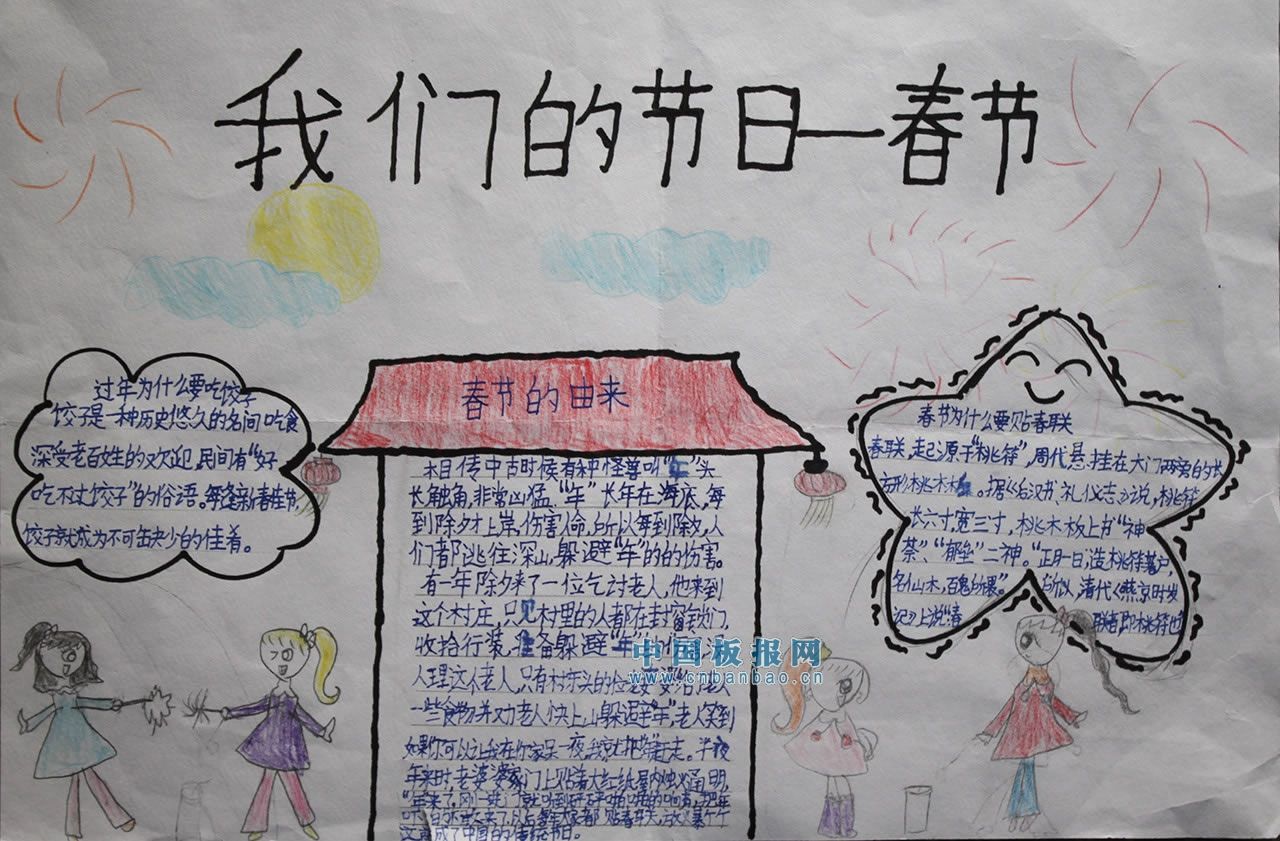 我们的节日—春节
过年为什么要吃饺子
饺子是一种历史悠久的名间吃食
深受老百姓的欢迎,民间有“好
吃不过饺子”的俗语。每逢新春佳节,
饺子就成为不可缺少的佳肴。
春节的由来
相传中古时候有种怪兽叫“年”头
长触角,非常凶猛,“年”长年在海底,每
到除夕才上岸,伤害人命,所以每到除夕,人
们都逃往深山,躲避“年”的的伤害。
有一年除夕来了一位乞讨老人,他来到
这个村庄,只见村里的人都在封窗锁门,
收拾行装,准备躲避“年”的
人理这个老人,只有村东头的位老婆婆给了老人
一些食物并劝老人快上山躲避“年”,老人笑到
如果你可以让我在你家呆一夜,我就把“年”赶走。半夜
年来时,老婆婆家门上贴着大红纸屋内烛火通明,
“年来了,刚一进门就听到
都贴春联,放爆竹
成了中国的传统节日。
春节为什么要贴春联
春联,起源于“桃符”,周代悬挂在大门两旁的长
方形桃木板。据《后汉书·礼仪志》说,桃符
长六寸,宽三寸,桃木板上书“神
荼”、“郁垒”二神。“正月一日,造桃符著户,
名仙木,百鬼所畏”。所以,清代《燕京时岁
记》上说“春联者即桃符也
中国板报网
www.cnbanbao.cn